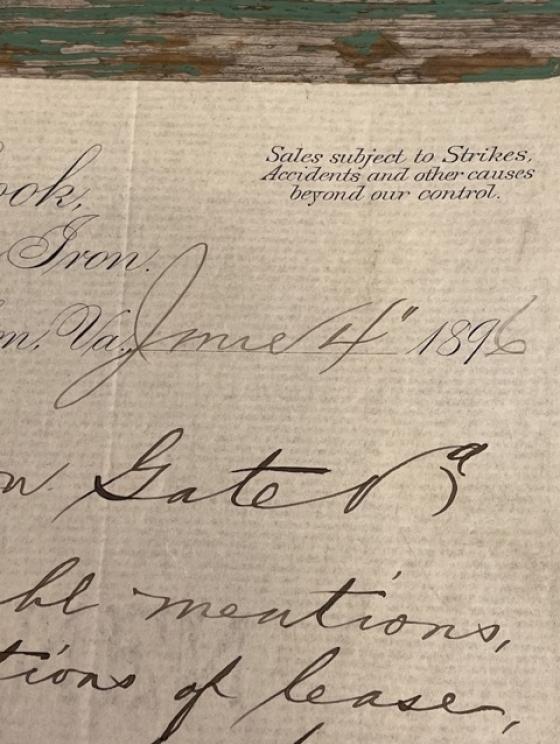 Sales subject to Strikes,
Accidents and other causes
beyond our control.
ook,
Iron.
on, Va., June 4" 1896
n Gate Va
bl mentions,
tions of lease,